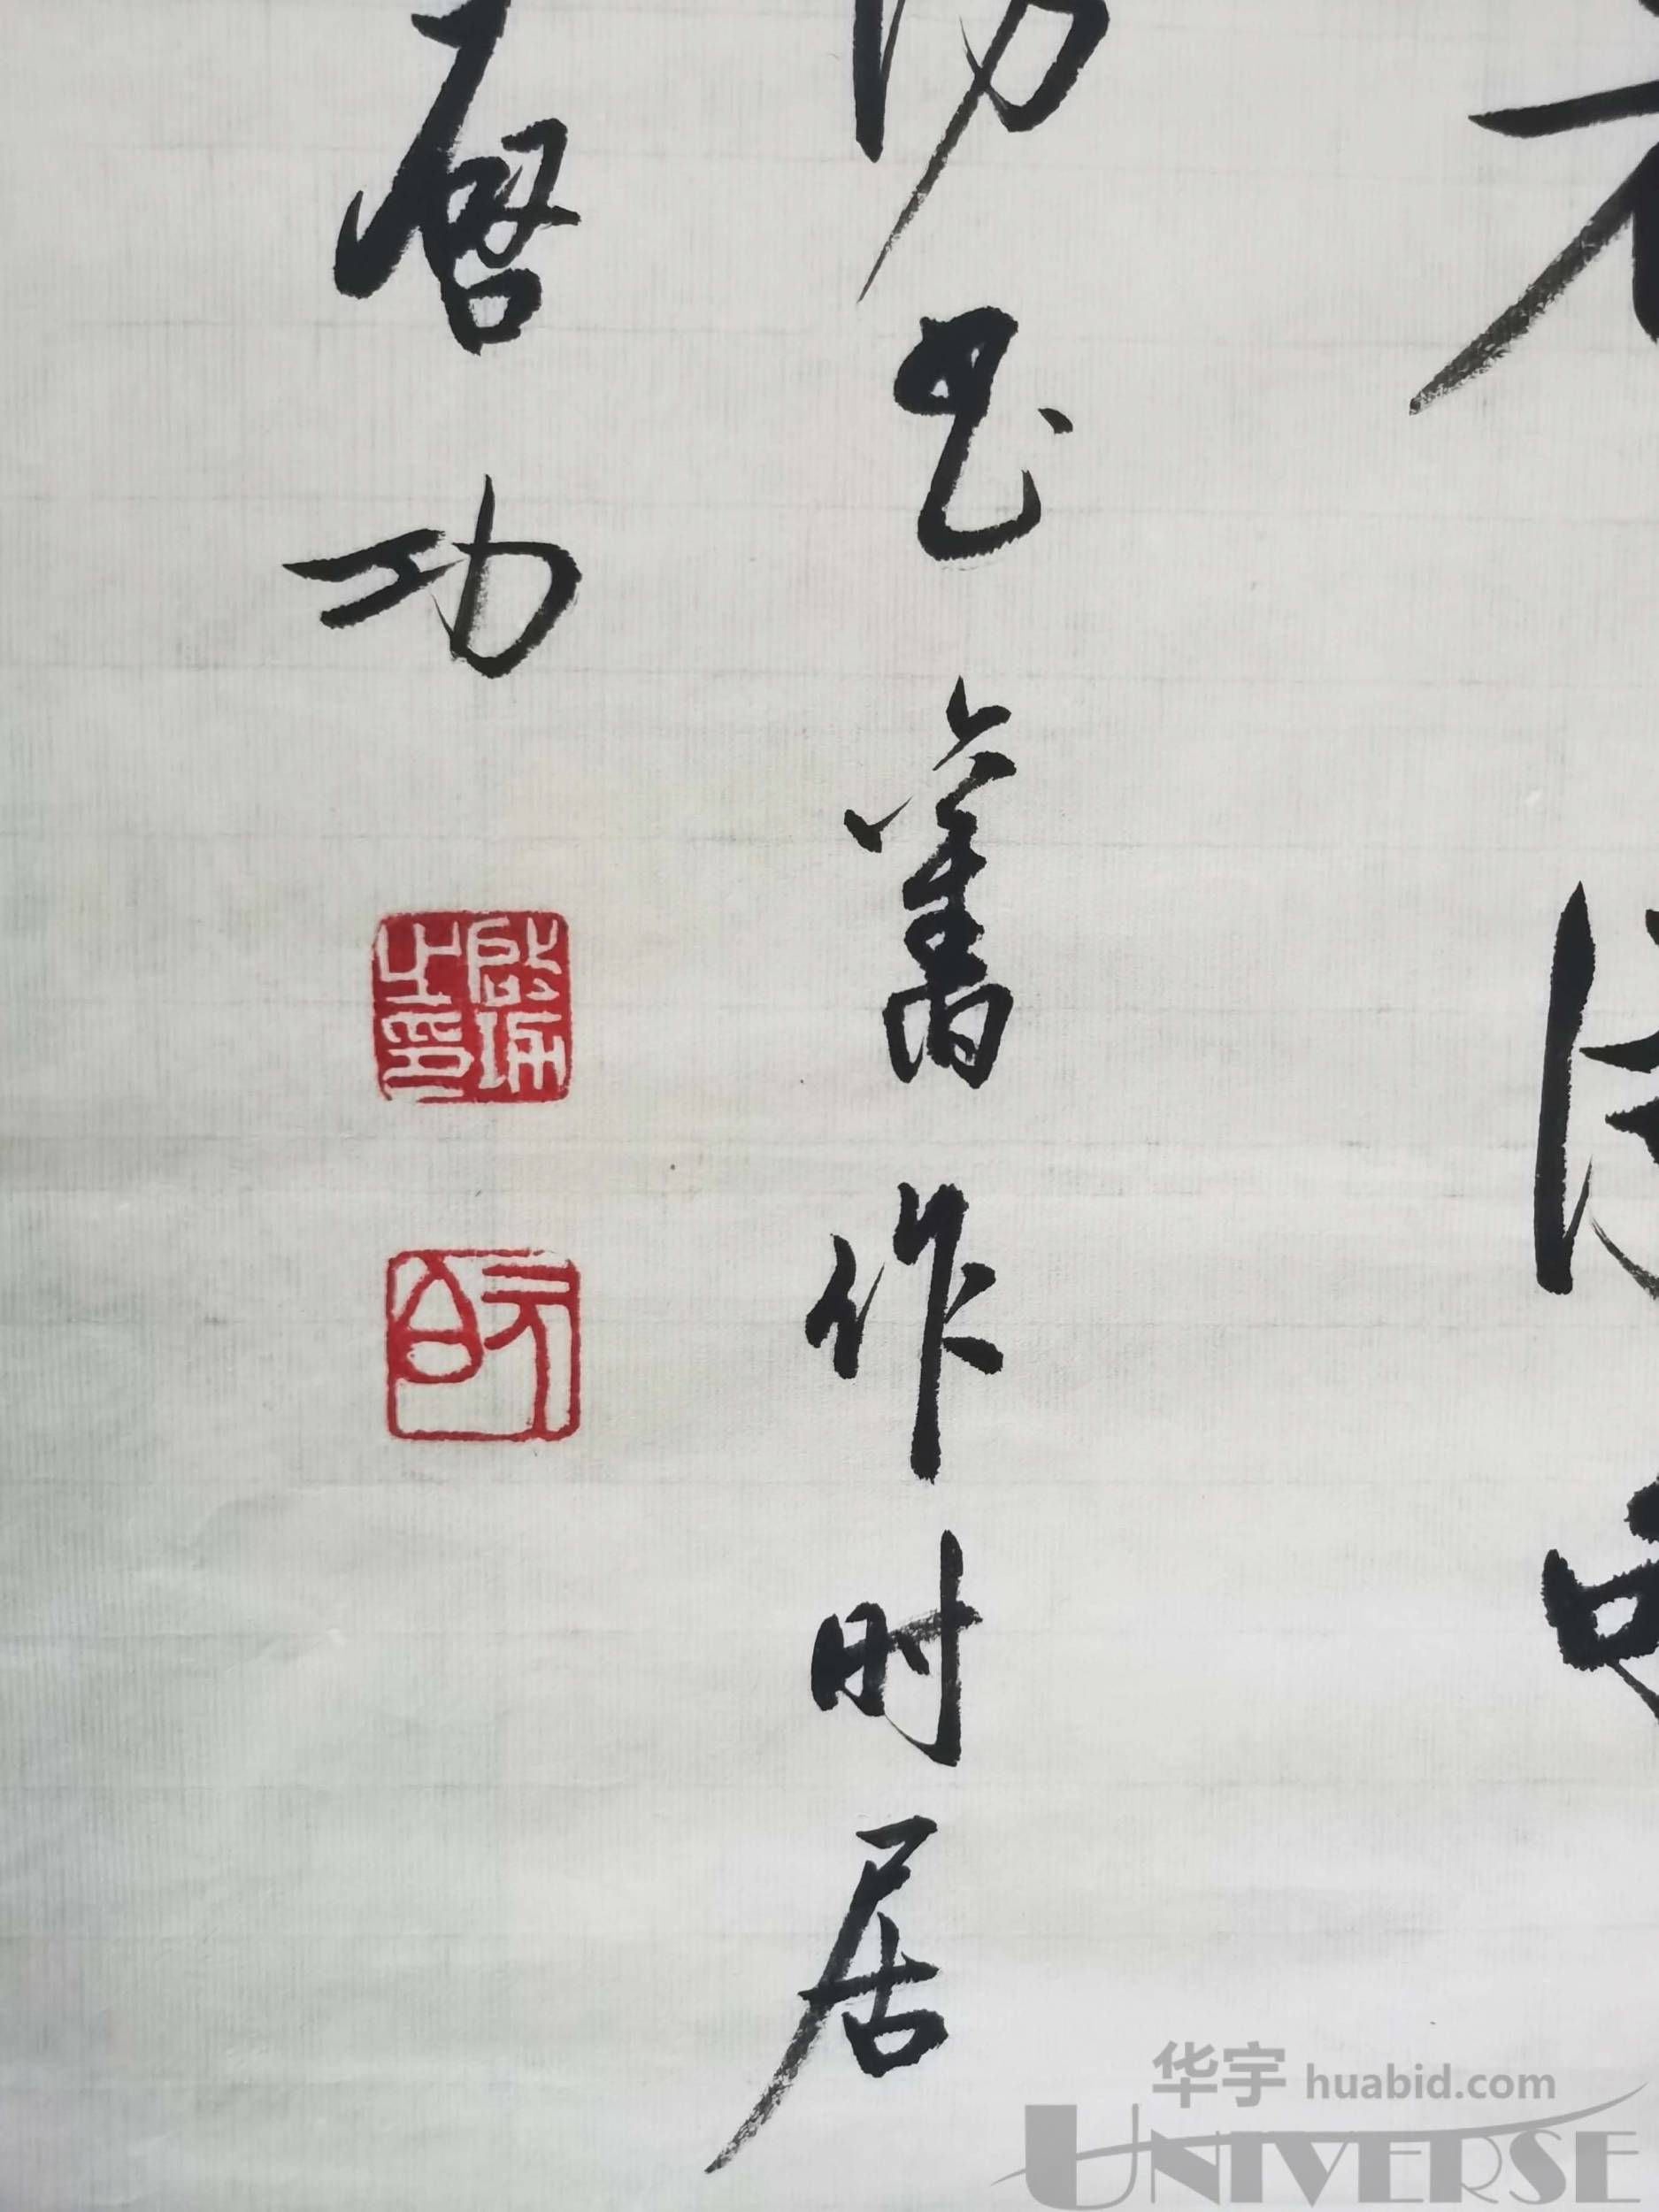 书舊作时居
啓功
啟功之印
元白
华宇 huabid.com
UNIVERSE